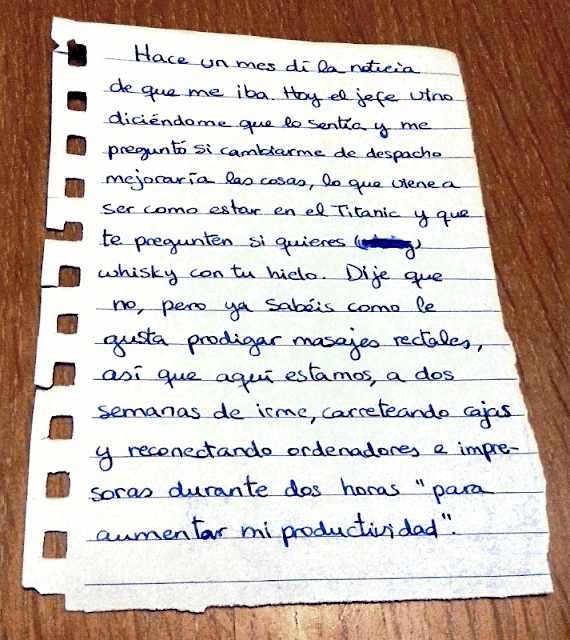 Hace un mes di la noticia
de que me iba. Hoy el jefe vino
diciéndome que lo sentía y me
preguntó si cambiarme de despacho
mejoraría las cosas, lo que viene a
ser como estar en el Titanic y que
te pregunten si quieres
whisky con tu hielo. Dije que
no, pero ya sabéis como le
gusta prodigar masajes rectales,
así que aquí estamos, a dos
semanas de irme, carreteando cajas
y reconectando ordenadores e impre-
soras durante dos horas "para
aumentar mi productividad".